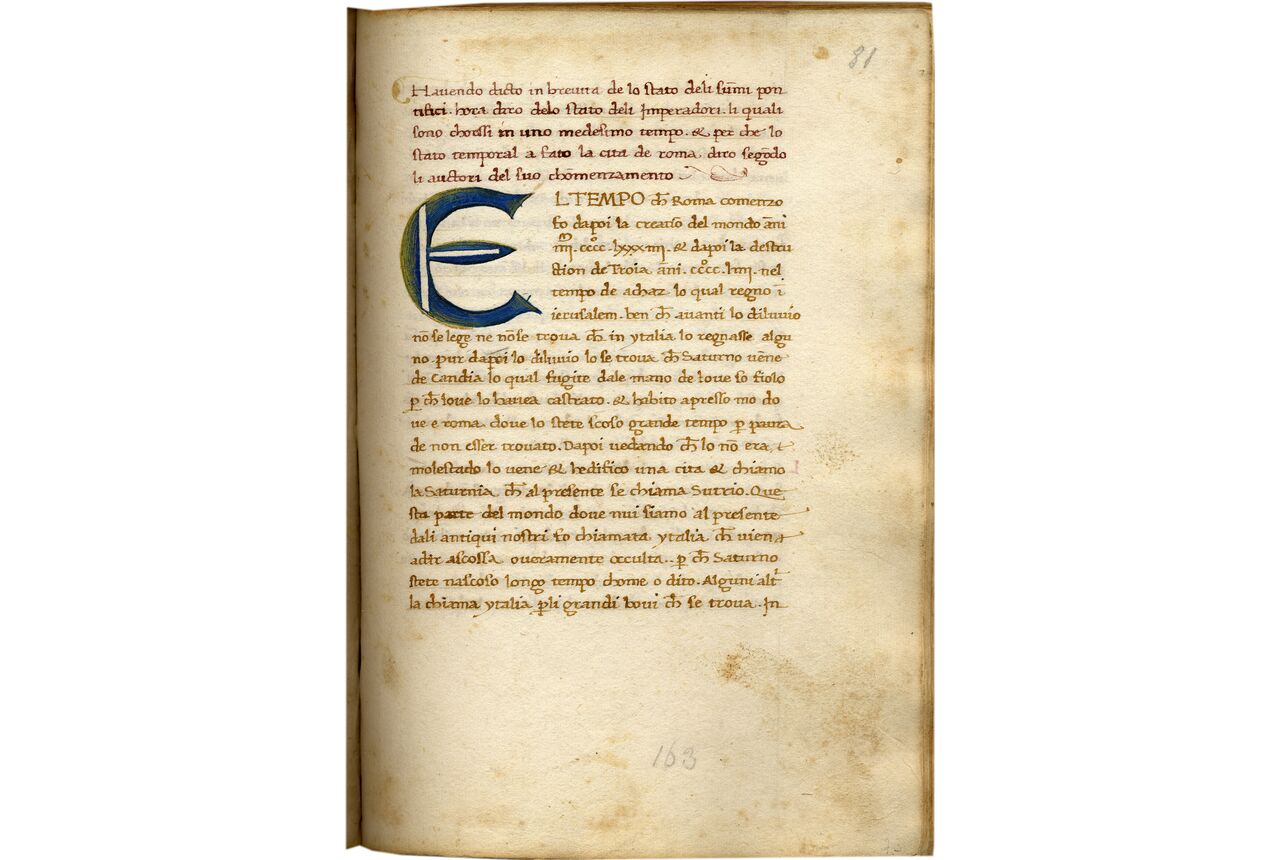 81
Havendo dicto in brevita de lo stato deli sum̄i pon
tifici. hora diro delo stato deli Imperadori. li quali
sono chorssi in uno medesimo tempo. & per che lo
stato temporal a fato la cita de roma. diro segōdo
li auctori del suo chōmenzamento
EL TEMPO ch̄ Roma comenzo
fo dapoi la creatiō del mondo āni
.cccc.lxxxiiij. & dapoi la destru
ction de Troia āni. cccc.liiij. nel
tempo de achaz lo qual regno ī
ierusalem. ben ch̄ avanti lo diluvio
nō se lege ne nōse trova ch̄ in ytalia lo regnasse algu
no pur dapoi lo diluvio lo se trova ch̄ Saturno vēne
de Candia lo qual fugite dale mano de Iove so fiolo
p̱ ch̄ Iove lo havea castrato. & habito apresso mo do
ve e roma. dove lo stete scoso grande tempo p̱ paura
de non esser trovato. Dapoi vedando ch̄ lo nō era
molestado lo vene & hedifico una cita & chiamo
la Saturnia. ch̄ al presente se chiama Sutrio. Que
sta parte del mondo dove nui siamo al presente
dali antiqui nostri fo chiamata ytalia ch̄ vien
adir ascossa overamente occulta. p̱ ch̄ Saturno
stete nascoso longo tempo chome o dito. Alguni alt̄
la chiama ytalia p̱li grandi bovi ch̄ se trova. In
163